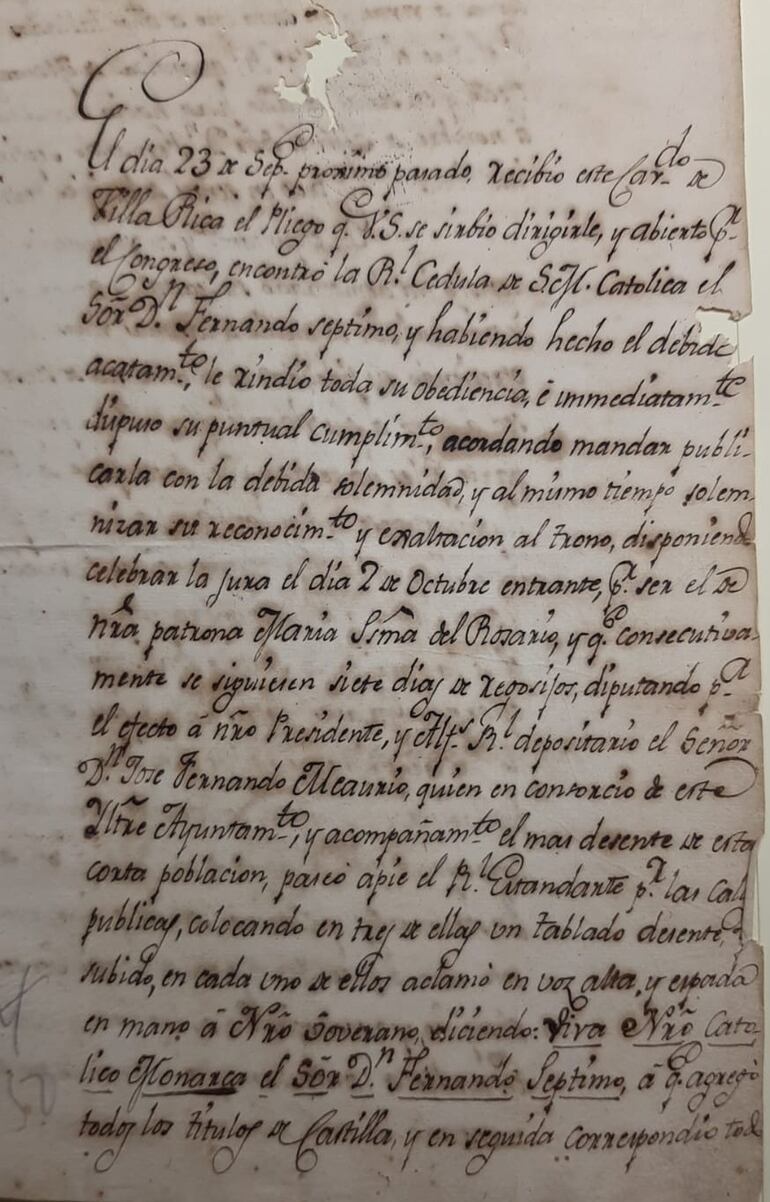 El dia 23 de Sepe. proximo pasado, recibio este Car.do de
Villa Rica el Pliego q.e V.S. se sirbio dirigirle, y abierto p.r
el Congreso, encontró la R.l Cedula de S.M. Catolica el
Sõr D.n Fernando septimo, y habiendo hecho el debido
acatam.to, le rindio toda su obediencia, é immediatam.te
dispuso su puntual cumplim.to, acordando mandar publi-
carla con la debida solemnidad, y al mismo tiempo solem-
nizar su reconocim.to y exaltacion al trono, disponiendo
celebrar la jura el dia 2 de Octubre entrante, p.r ser el de
nr̃a patrona Maria Ssm̃a del Rosario, y q.e consecutiva-
mente se siguiesen siete dias de regosijos, diputando p.a
el efecto á nr̃o Presidente, y Alf.s R.l depositario el Señor
D.n Jose Fernando Meaurio, quien en consorcio de este
Yltr̃e Ayuntam.to, y acompañam.to el mas desente de esta
corta poblacion, paseó apie el R.l Estandarte p.r las cal
publicas, colocando en tres de ellas un tablado desente,
subido, en cada uno de ellos aclamó en voz alta, y espada
en mano á Nr̃o Soverano, diciendo: Viva Nr̃o Cato-
lico Monarca el Sõr D.n Fernando Septimo, á q.e agregó
todos los titulos de Castilla, y en seguida correspondio tod